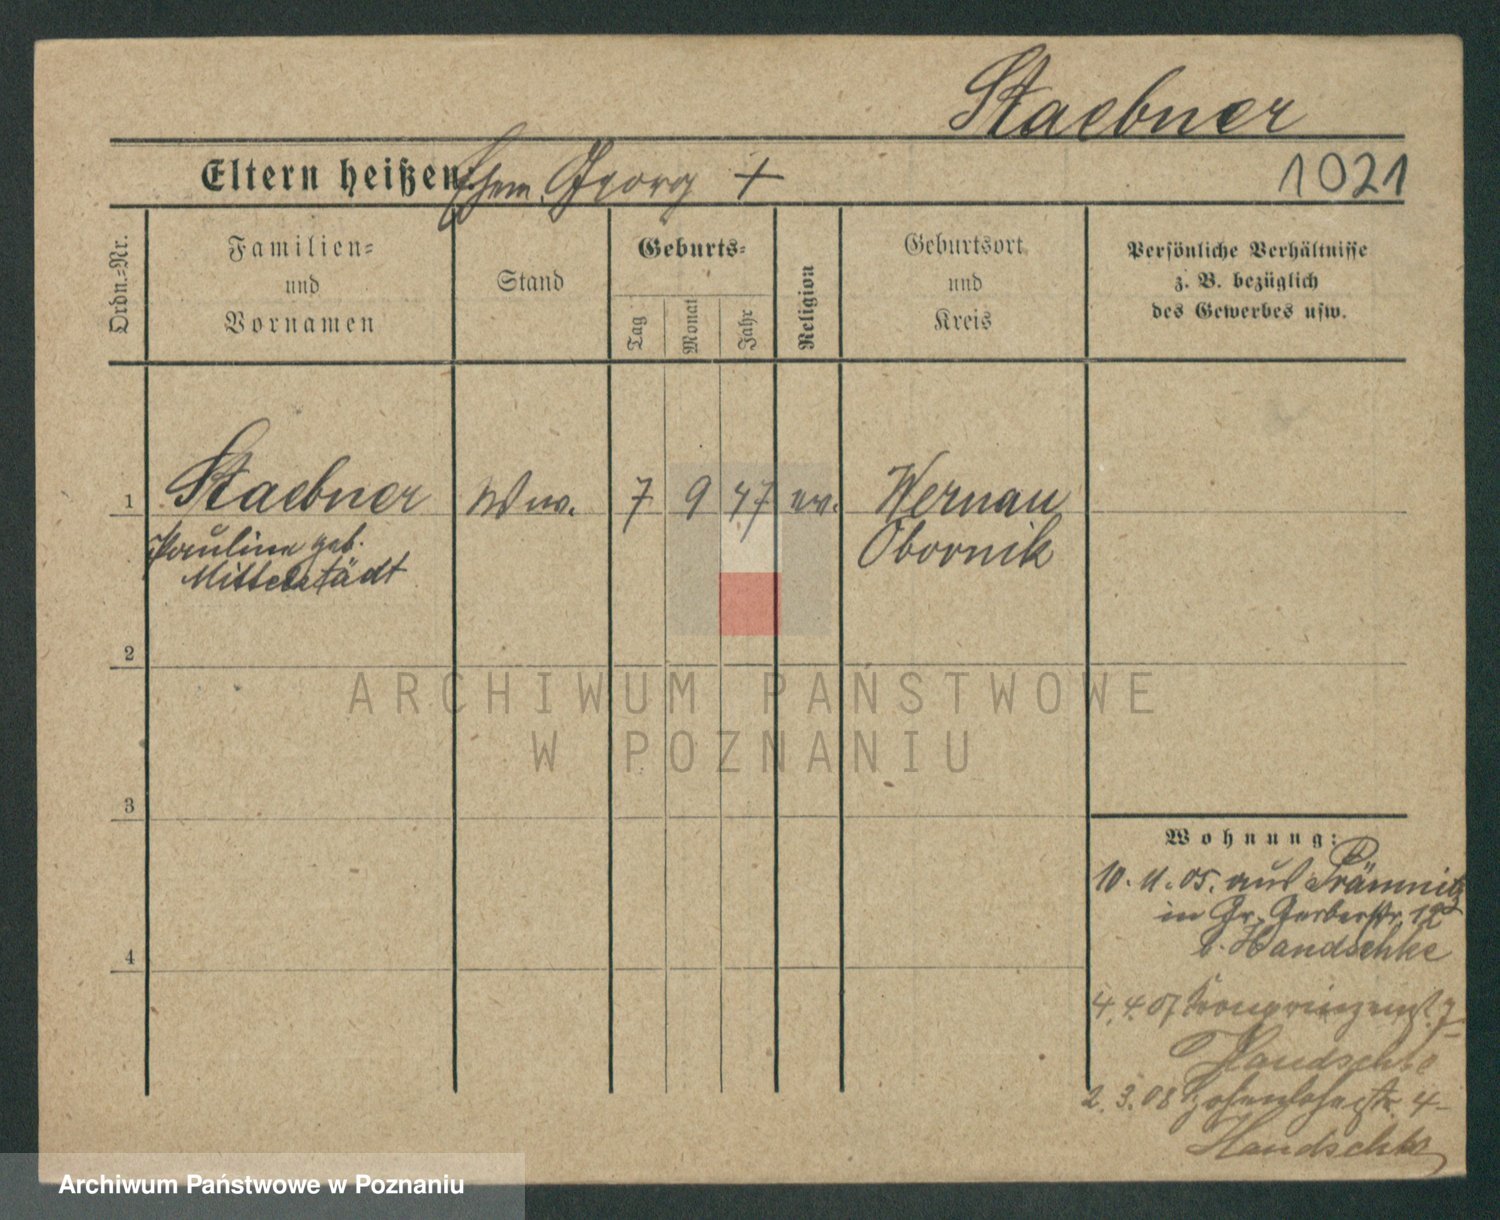 Staebner
Eltern heißen Ehem. Georg +
1021
Ordn.=Nr.
Familien=
und
Vornamen
Stand
Geburts=
Tag
Monat
Jahr
Religion
Geburtsort
und
Kreis
Persönliche Verhältnisse
z. B. bezüglich
des Gewerbes usw.
1 Staebner Ww. 7 9 47 ev. Wernau
Pauline geb. Obornik
Mittelstädt
2
ARCHIWUM PAŃSTWOWE
W POZNANIU
3
Wohnung:
10. 11. 05. aus Prämnitz
in Gr. Gerberstr. 12
b. Handschke
4
4. 4. 07 Kronprinzenst. 7
Handschke
2. 3. 08 Hohenlohestr. 4
Handschke
Archiwum Państwowe w Poznaniu